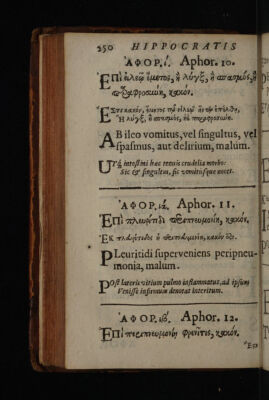 250 HIPPOCRATIS
ΑΦΟΡ. ί. Aphor. 10.
ΕΠὶ εἰλεῷ ἔμετος, ἢ λύγξ, ἢ σπασμὸς, ἢ
παραφροσύνη, κακόν.
Η λύγξ, ἢ σπασμὸς,
AB ileo vomitus, vel singultus, vel
spasmus, aut delirium, malum.
intestini hæc tenuis crudelia morbo:
Sic & singultus, sic vomitusque nocet.
ΑΦΟΡ. ιά. Aphor. 11.
ΕΠὶ πλευρίτιδι περιπνευμονίη, κακόν.
ΕΚ πλευρίτιδος ἡ περιπνευμονίη, κακόν
PLeuritidi superveniens peripneu-
monia, malum.
POst lateris vitium pulmo inflammatus, ad ipsum
Venisse infirmum denotat interitum.
ΑΦΟΡ. ιβ. Aphor. 12.
ΕΠὶ περιπνευμονίῃ φρενῖτις, κακόν.